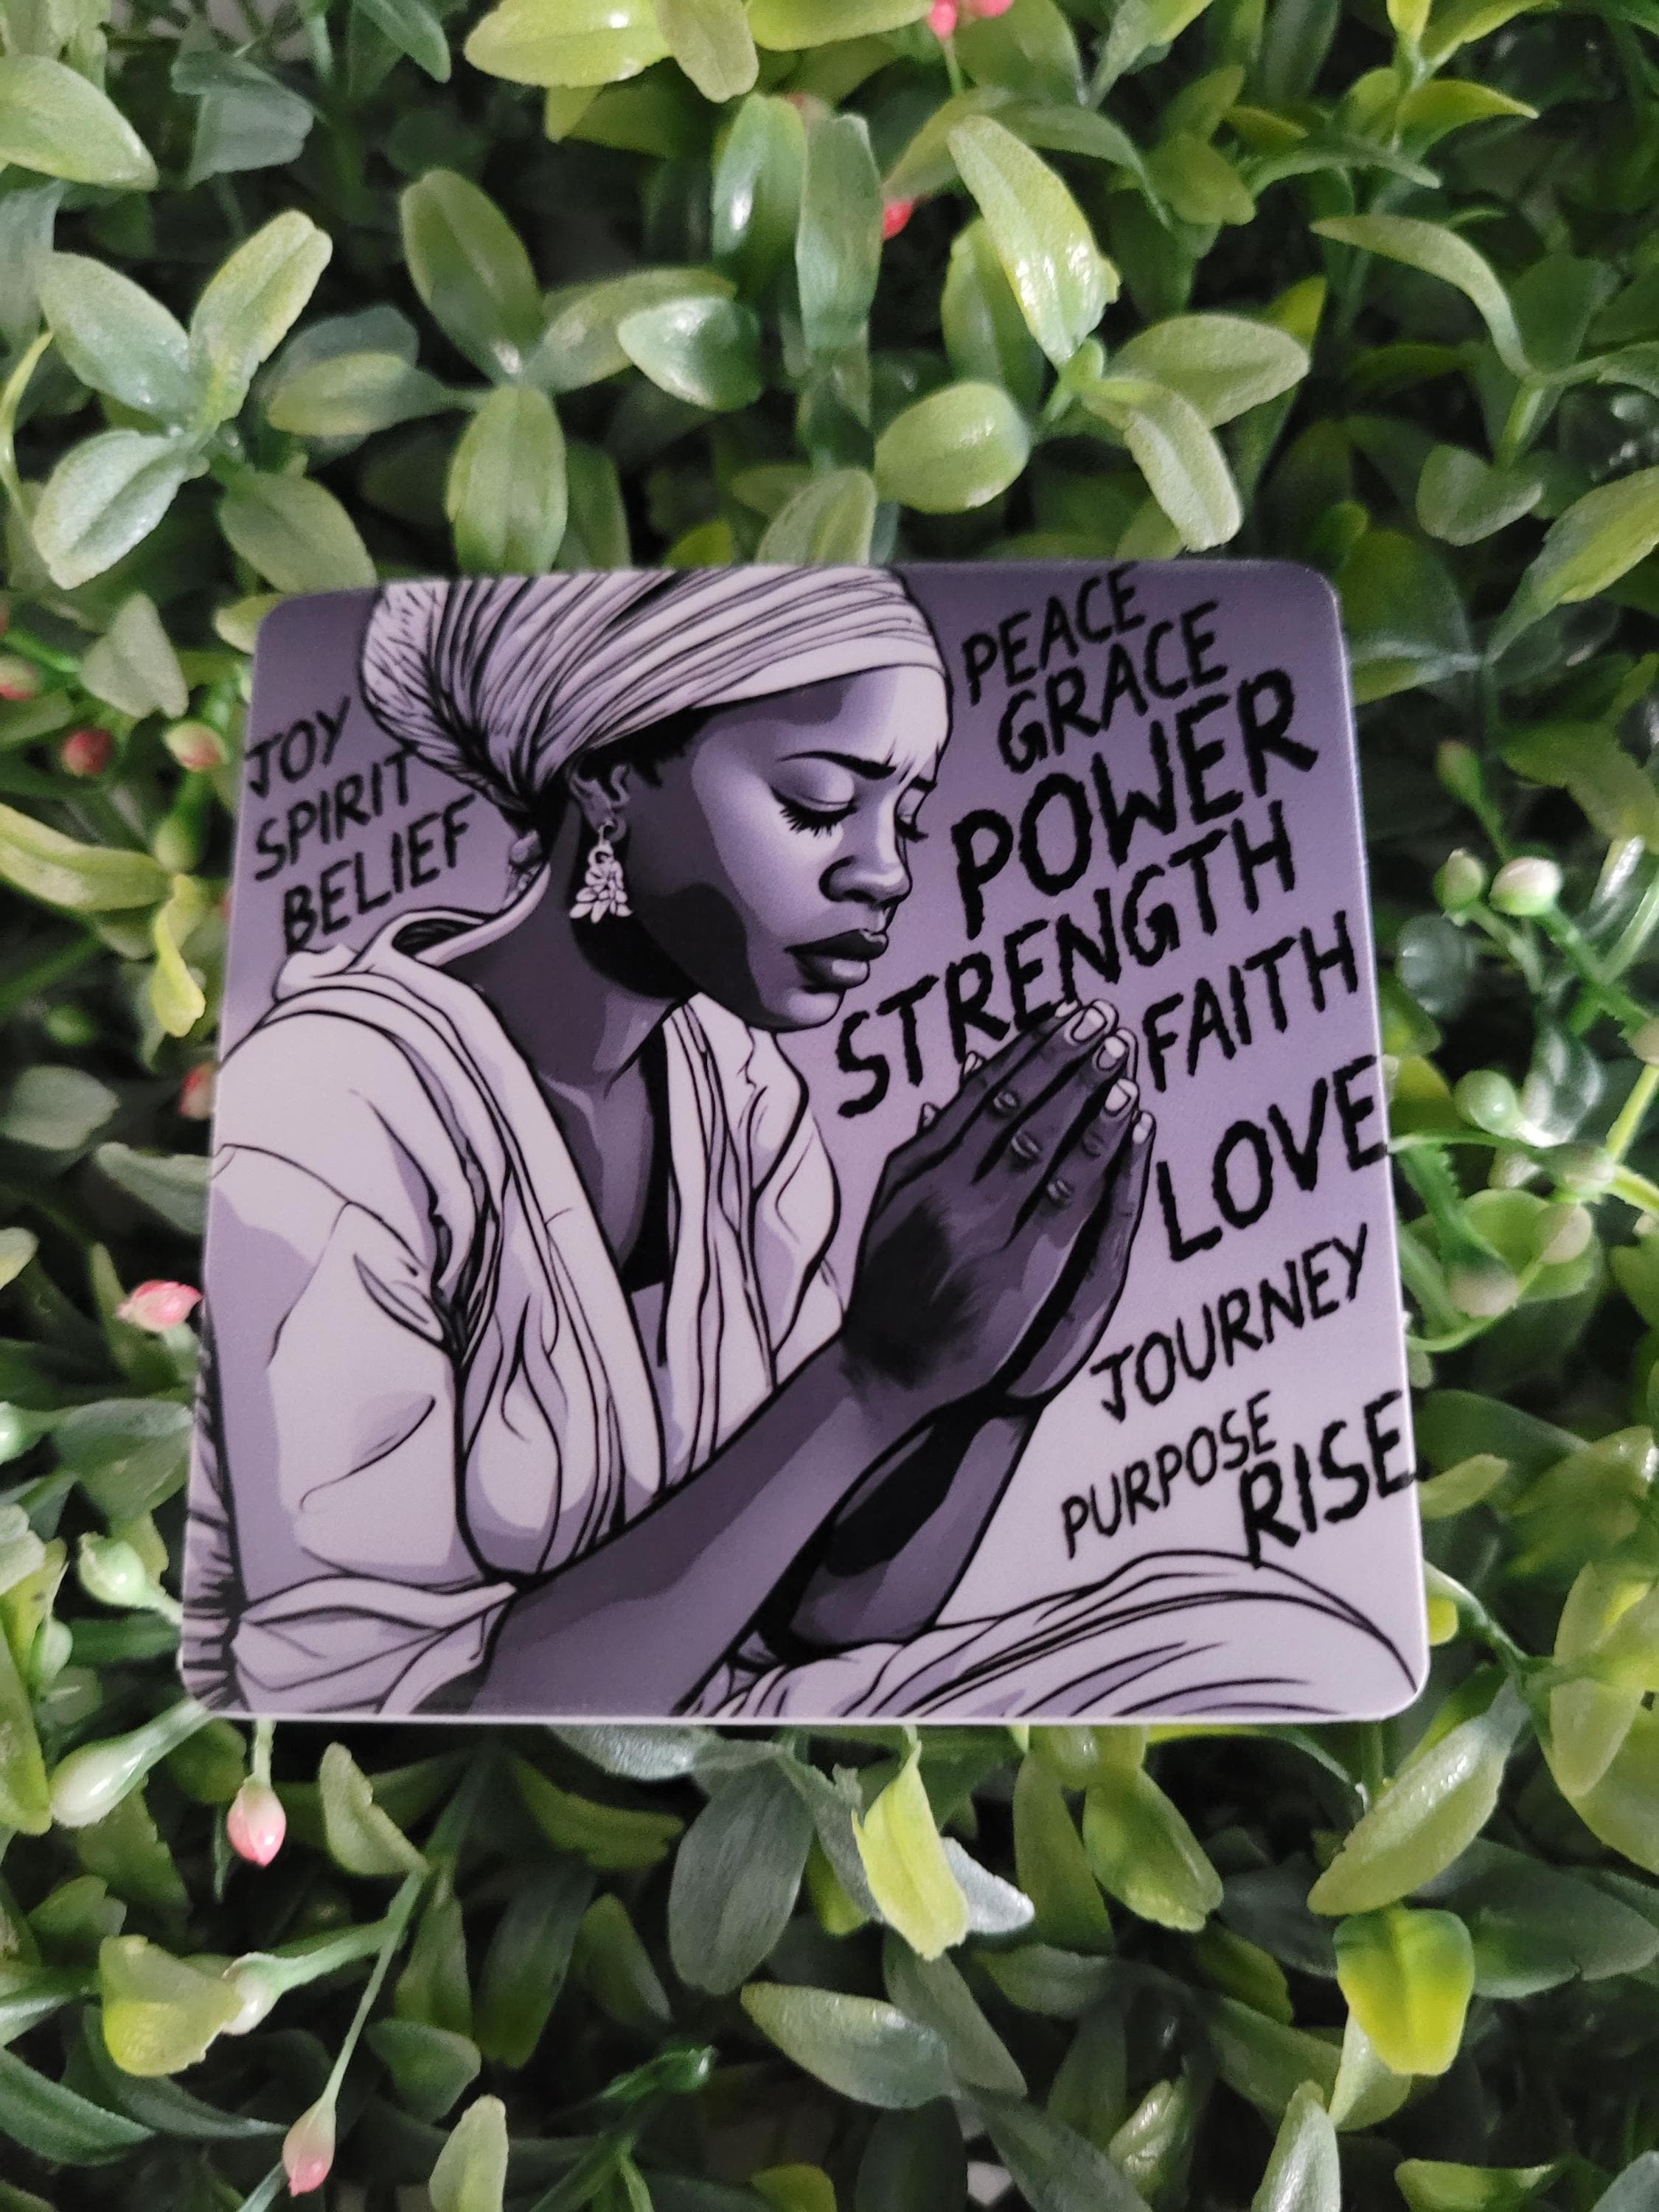 JOY
SPIRIT
BELIEF
PEACE
GRACE
POWER
STRENGTH
FAITH
LOVE
JOURNEY
PURPOSE
RISE